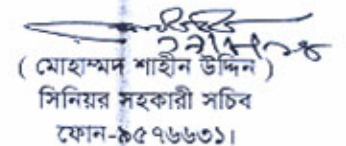 ( মোহাম্মদ শাহীন উদ্দিন )
সিনিয়র সহকারী সচিব
ফোন-৯৫৭৬৬৩১।